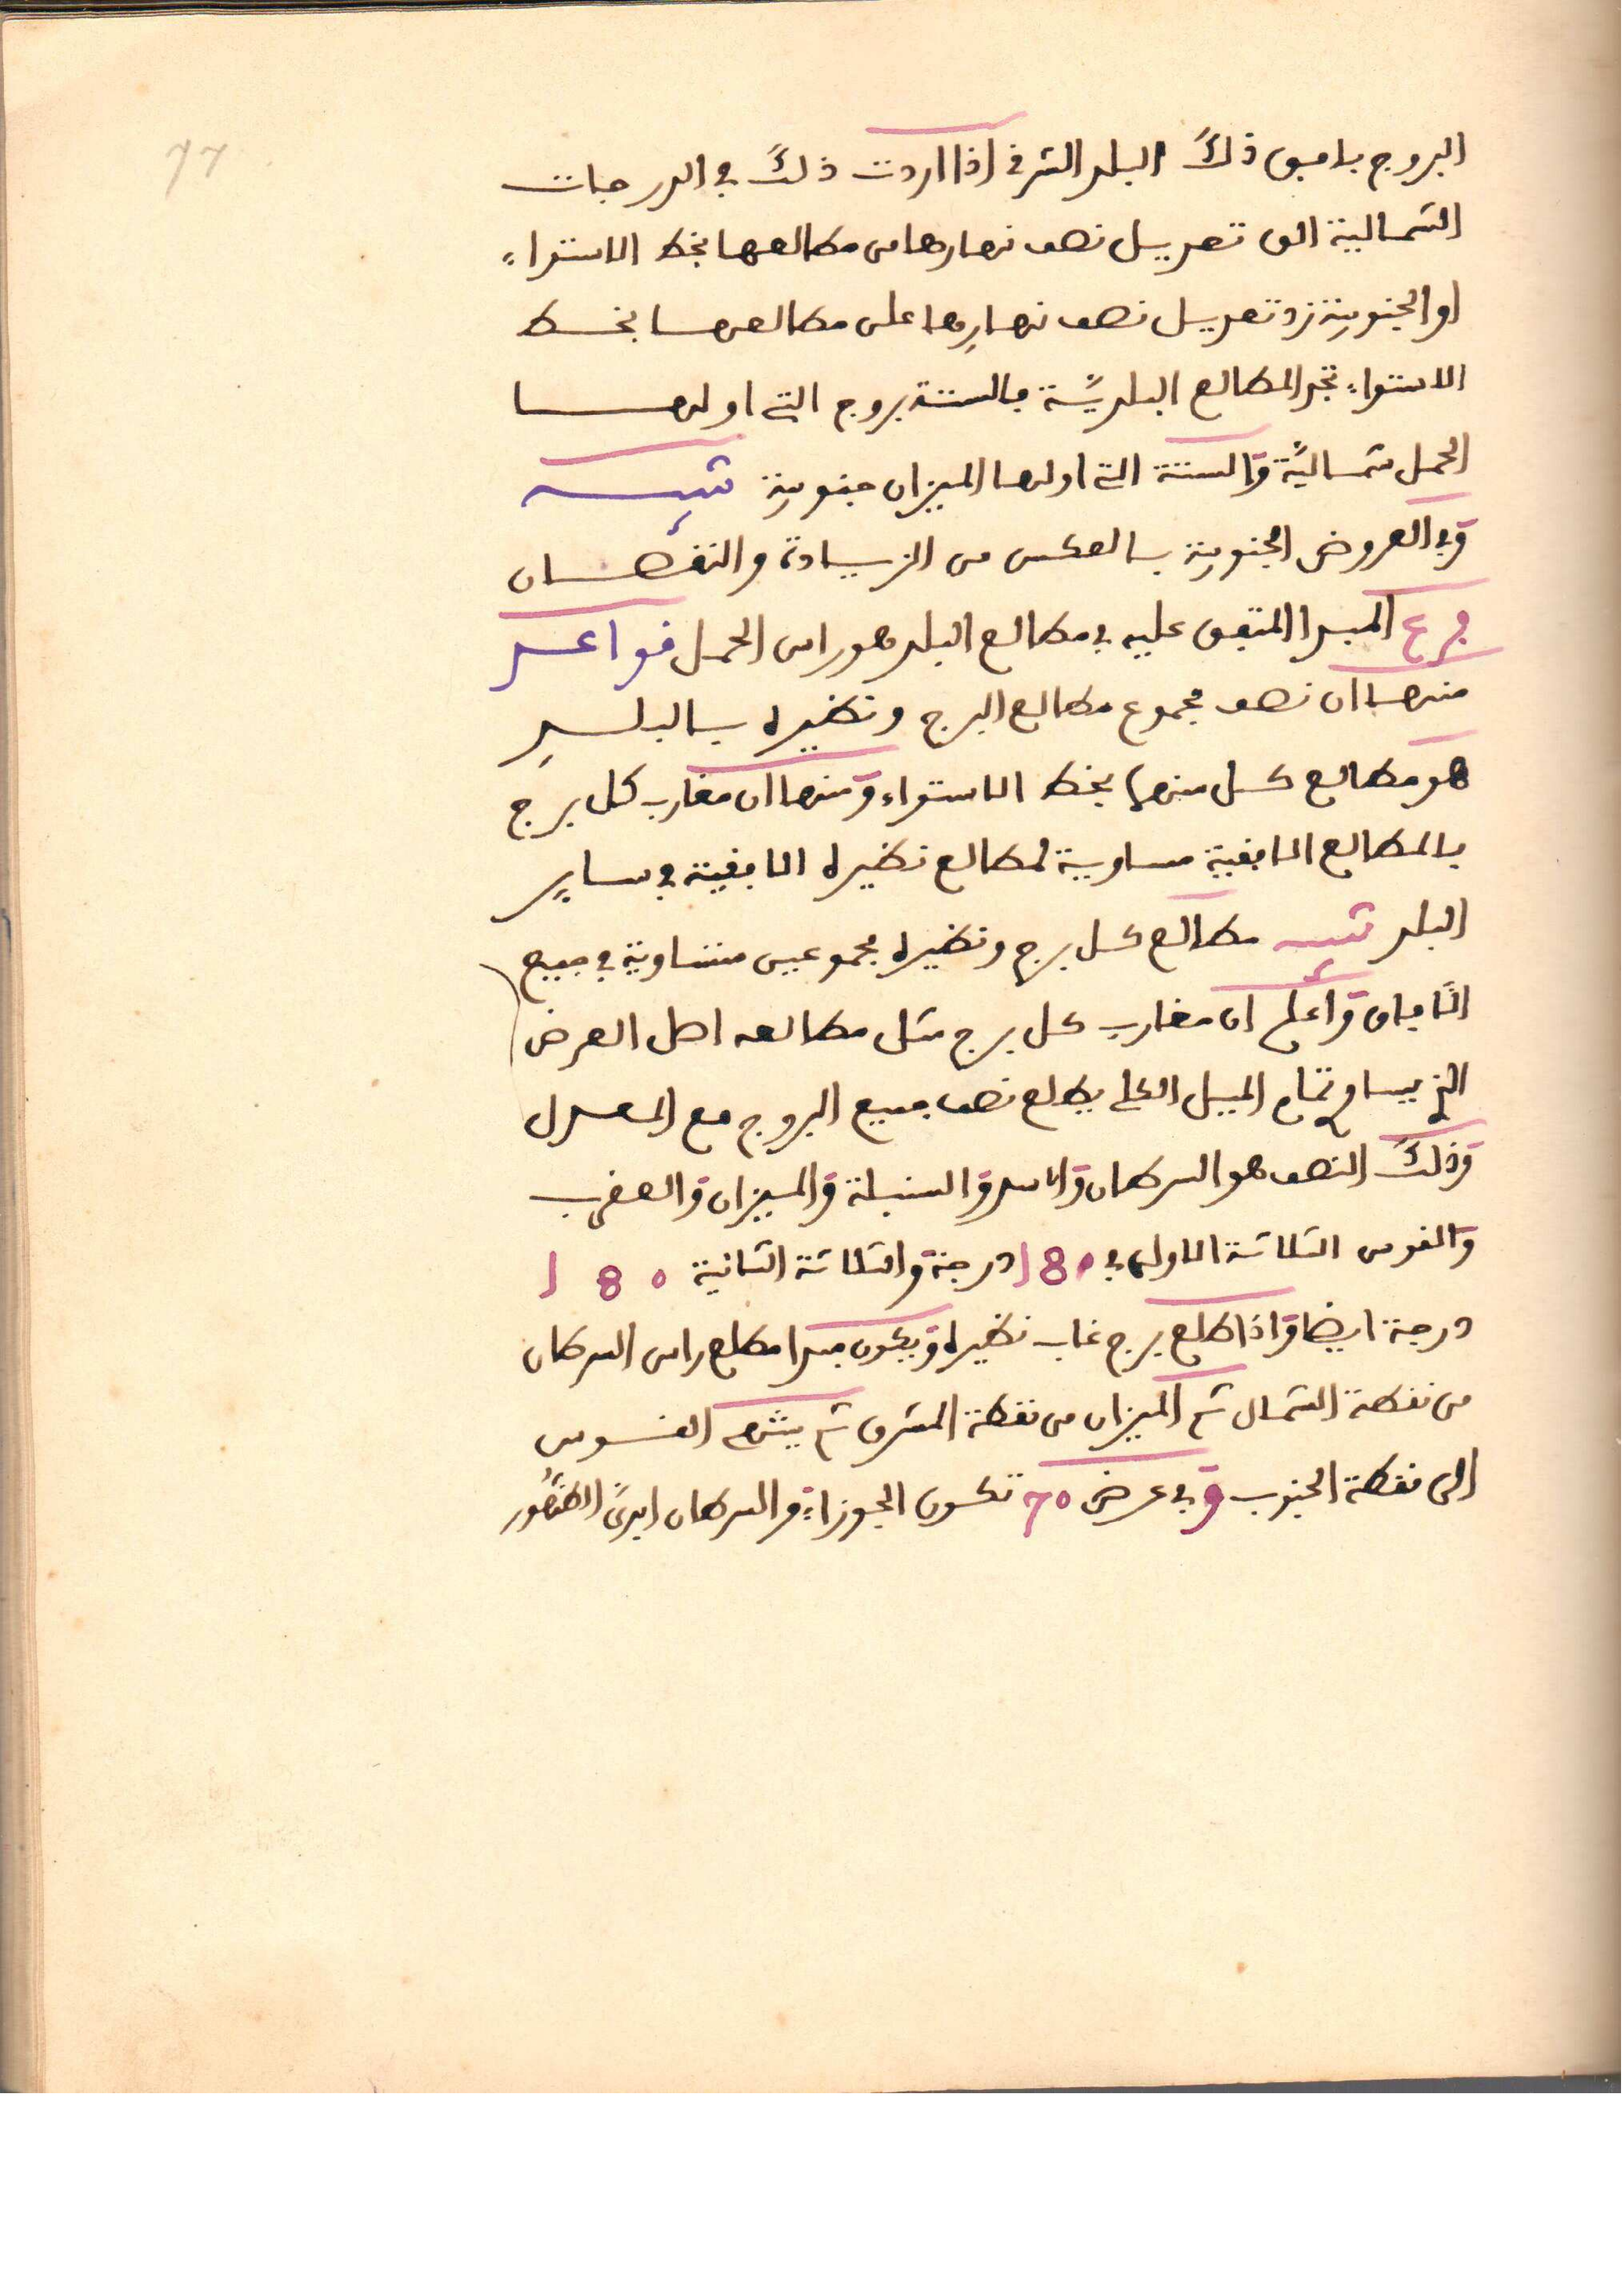 77
البروج بافق ذلك البلد الشرقي اذا اردت ذلك في الدرجات
الشمالية الق تعديل نصف نهارها من مطالعها بخط الاستواء
او الجنوبية زد تعديل نصف نهارها على مطالعها بخط
الاستواء تجد المطالع البلدية فالستة بروج التي اولها
الحمل شمالية والستة التي اولها الميزان جنوبية تنبيه
وفي العروض الجنوبية بالعكس من الزيادة والنقصان
فرع المبدا المتفق عليه في مطالع البلد هو راس الحمل قواعد
منها ان نصف مجموع مطالع البرج ونظيره بالبلد
هو مطالع كل منهما بخط الاستواء ومنها ان مغارب كل برج
بالمطالع الافقية مساوية لمطالع نظيره الافقية في ساير
البلد تنبيه مطالع كل برج ونظيره مجموعين متساوية في جميع
الآفاق واعلم ان مغارب كل برج مثل مطالعه اهل العرض
الذي يساوي تمام الميل الكلي يطلع نصف جميع البروج مع المعدل
وذلك النصف هو السرطان والاسد والسنبلة والميزان والعقرب
والقوس الثلاثة الاولى في 180 درجة والثلاثة الثانية 180
درجة ايضا واذا طلع برج غاب نظيره ويكون مبدا مطلع راس السرطان
من نقطة الشمال ثم الميزان من نقطة المشرق ثم ينتهي القوس
الى نقطة الجنوب وفي عرض 70 تكون الجوزاء والسرطان ابدي الظهور